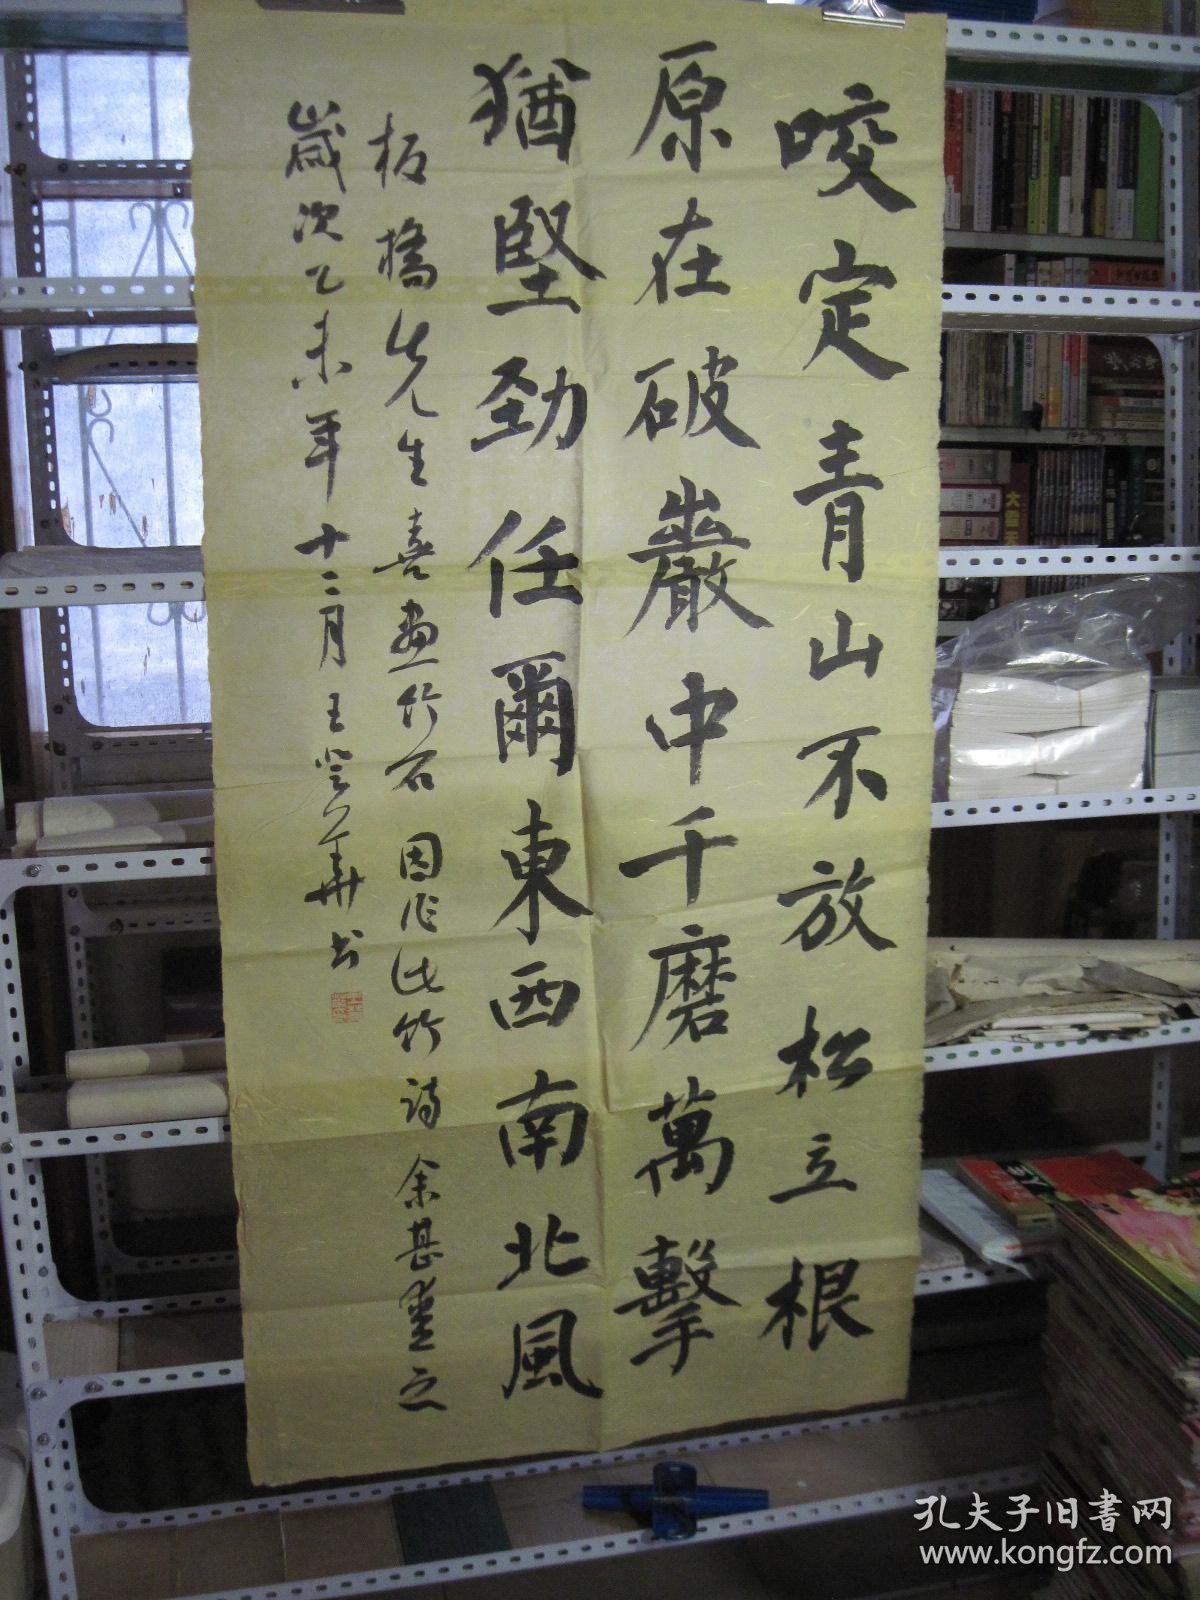 咬定青山不放松立根
原在破巖中千磨萬擊
猶堅勁任爾東西南北風
板橋先生喜画竹石因作此竹诗余甚爱之
歲次乙未年十二月王登华书
孔夫子旧书网
www.kongfz.com